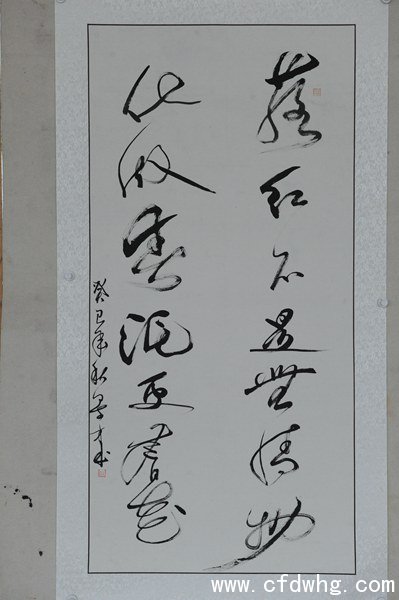 落红不是無情物
化做春泥更護花
癸巳年秋
www.cfdwhg.com